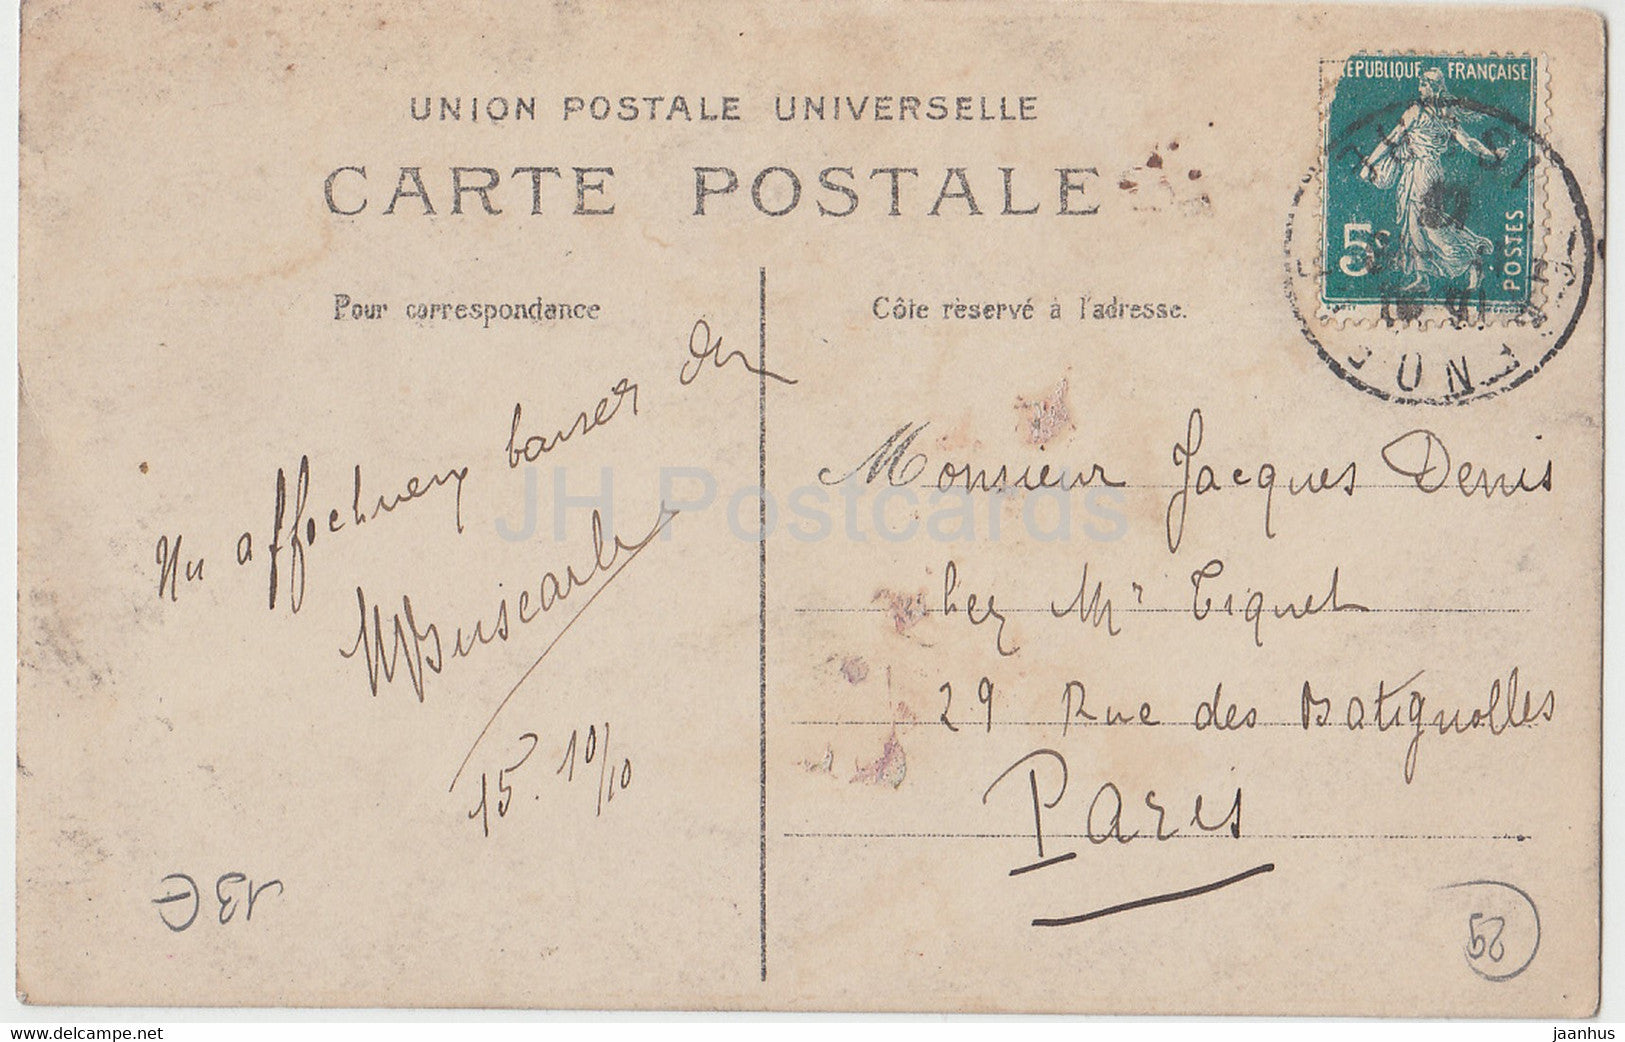 UNION POSTALE UNIVERSELLE
CARTE POSTALE
EPUBLIQUE FRANÇAISE
5c
POSTES
Pour correspondance
Côte rèservé à l'adresse.
Un affectueux baiser de
15. 10/10
Monsieur Jacques Denis
chez Mr Tiquet
29 Rue des Batignolles
Paris
13€
29
JH Postcards
www.delcampe.net
jaanhus